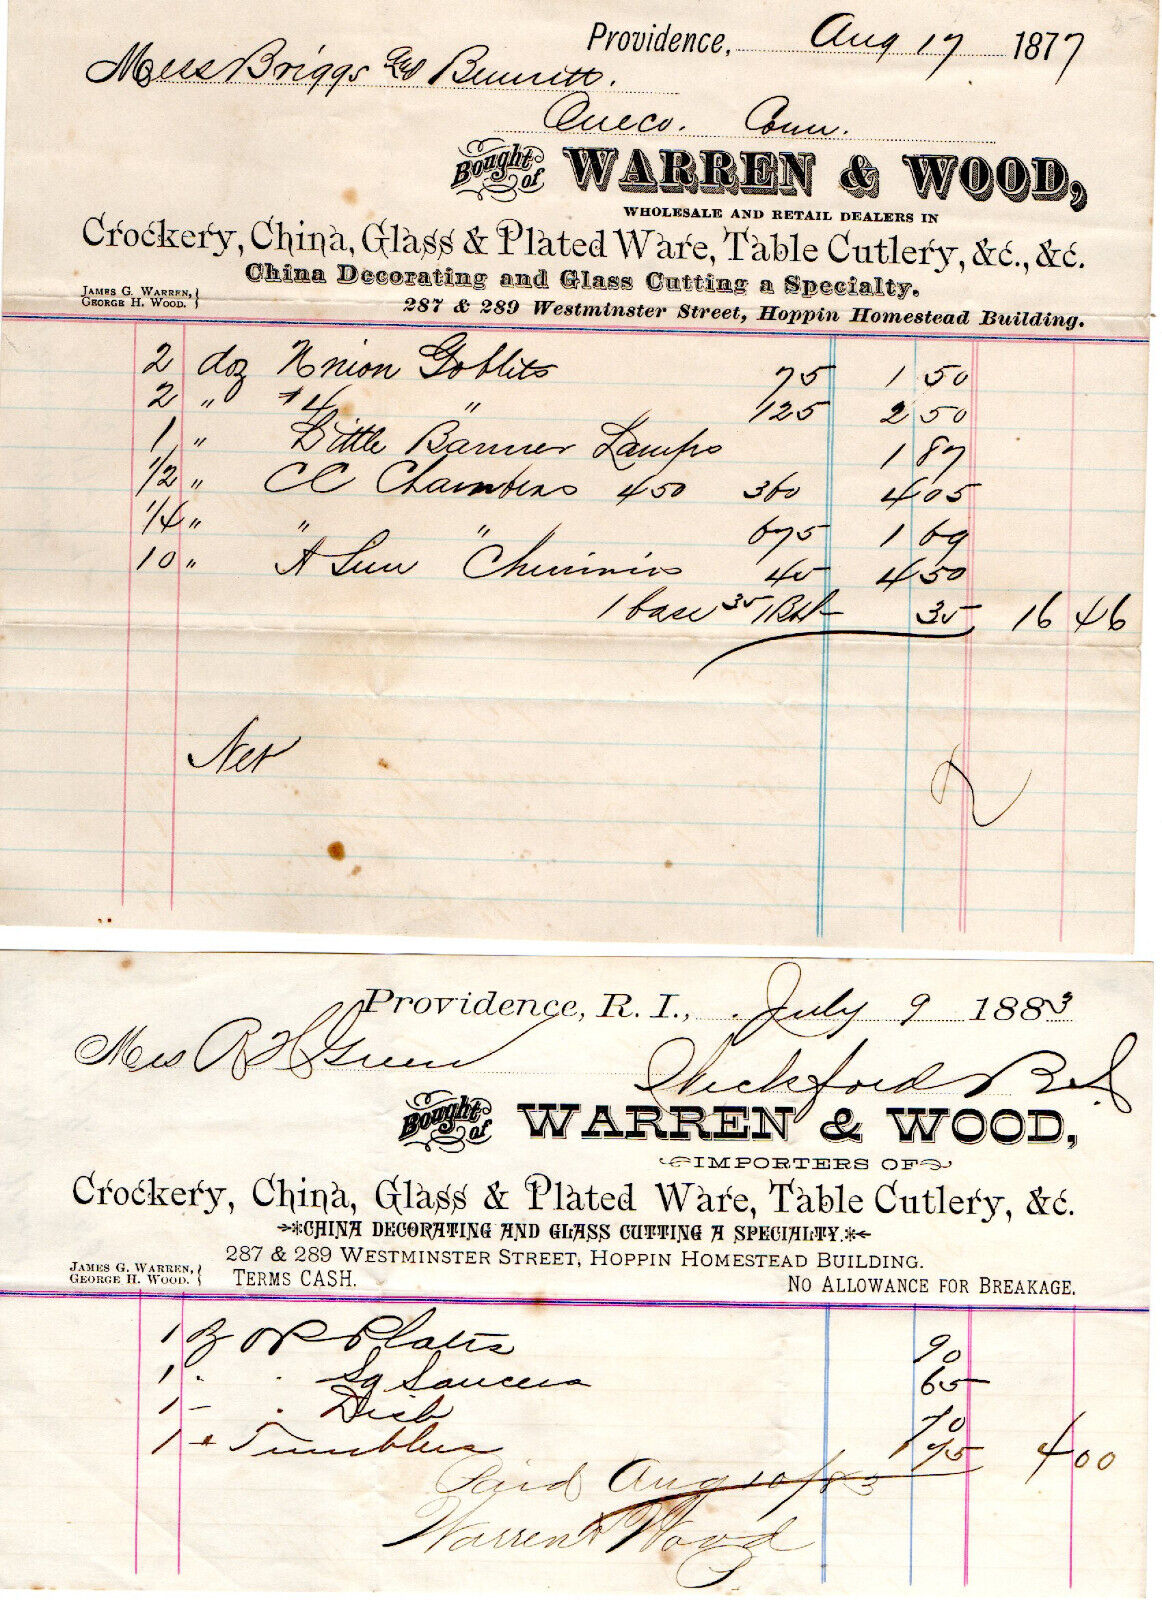 Providence, Aug 17 1877
Mess Briggs and Burritt.
Oneco. Conn.
Bought of WARREN & WOOD,
WHOLESALE AND RETAIL DEALERS IN
Crockery, China, Glass & Plated Ware, Table Cutlery, &c., &c.
China Decorating and Glass Cutting a Specialty.
JAMES G. WARREN,
GEORGE H. WOOD.
287 & 289 Westminster Street, Hoppin Homestead Building.
2 doz Union Goblets 75 1 50
2 " #4 " 125 2 50
1 " Little Banner Lamps 1 87
1/2 " CC Chambers 450 360 4 05
1/4 " " " 675 1 69
10 " A Sun Chimnies 45 4 50
1 base 35 1 Bbl 35 16 46
Net
Providence, R. I., July 9 1883
Mess R H Green
Wickford R I
Bought of WARREN & WOOD,
IMPORTERS OF
Crockery, China, Glass & Plated Ware, Table Cutlery, &c.
CHINA DECORATING AND GLASS CUTTING A SPECIALTY.
287 & 289 WESTMINSTER STREET, HOPPIN HOMESTEAD BUILDING.
JAMES G. WARREN,
GEORGE H. WOOD.
TERMS CASH.
NO ALLOWANCE FOR BREAKAGE.
1 Plates 90
1 " " Sq Saucers 65
1 - " Dish 70
1 " Tumblers 1 75 4 00
Paid Aug 10/83
Warren & Wood